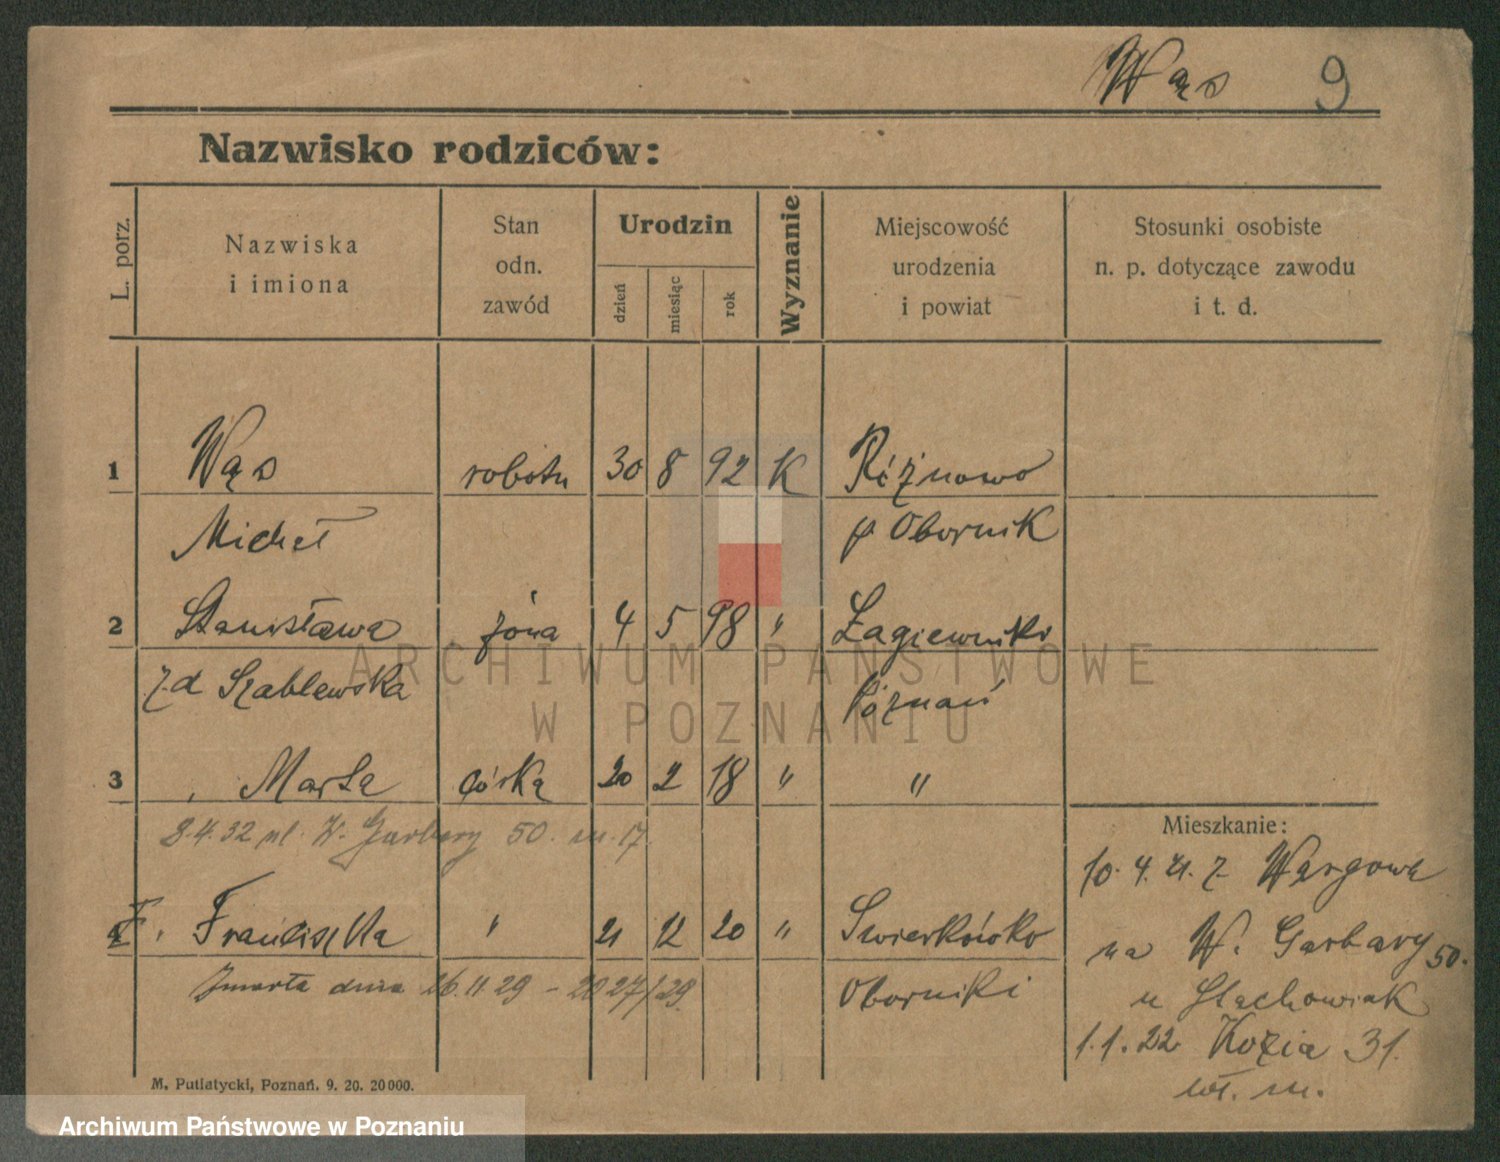 Wąs 9
Nazwisko rodziców:
L. porz.
Nazwiska
i imiona
Stan
odn.
zawód
Urodzin
dzień
miesiąc
rok
Wyznanie
Miejscowość
urodzenia
i powiat
Stosunki osobiste
n. p. dotyczące zawodu
i t. d.
1 Wąs robotn 30 8 92 K Różnowo
Michał p Obornik
2 Stanisława żona 4 5 98 " Łagiewniki
z.d Szablewska Poznań
3 Marta córka 20 2 18 " "
8.4.32 pl. W. Garbary 50. m. 17.
4 Franciszka " 21 12 20 " Swierkówko
Zmarła dnia 26.11.29 - 2027/29. Oborniki
Mieszkanie:
10.4.21. z Wargowa
na W. Garbary 50.
u Stachowiak
1.1.22 Kozia 31.
wł. m.
M. Putiatycki, Poznań. 9. 20. 20000.
ARCHIWUM PAŃSTWOWE
W POZNANIU
Archiwum Państwowe w Poznaniu